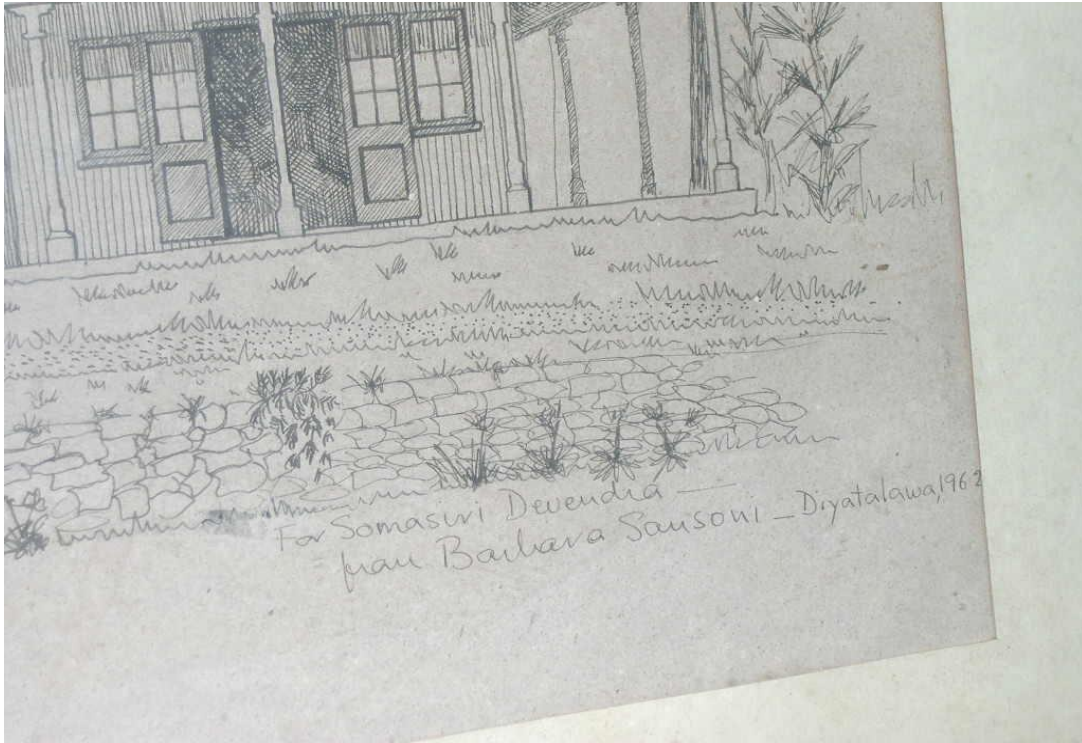 For Somasiri Devendra —
from Barbara Sansoni — Diyatalawa, 1962